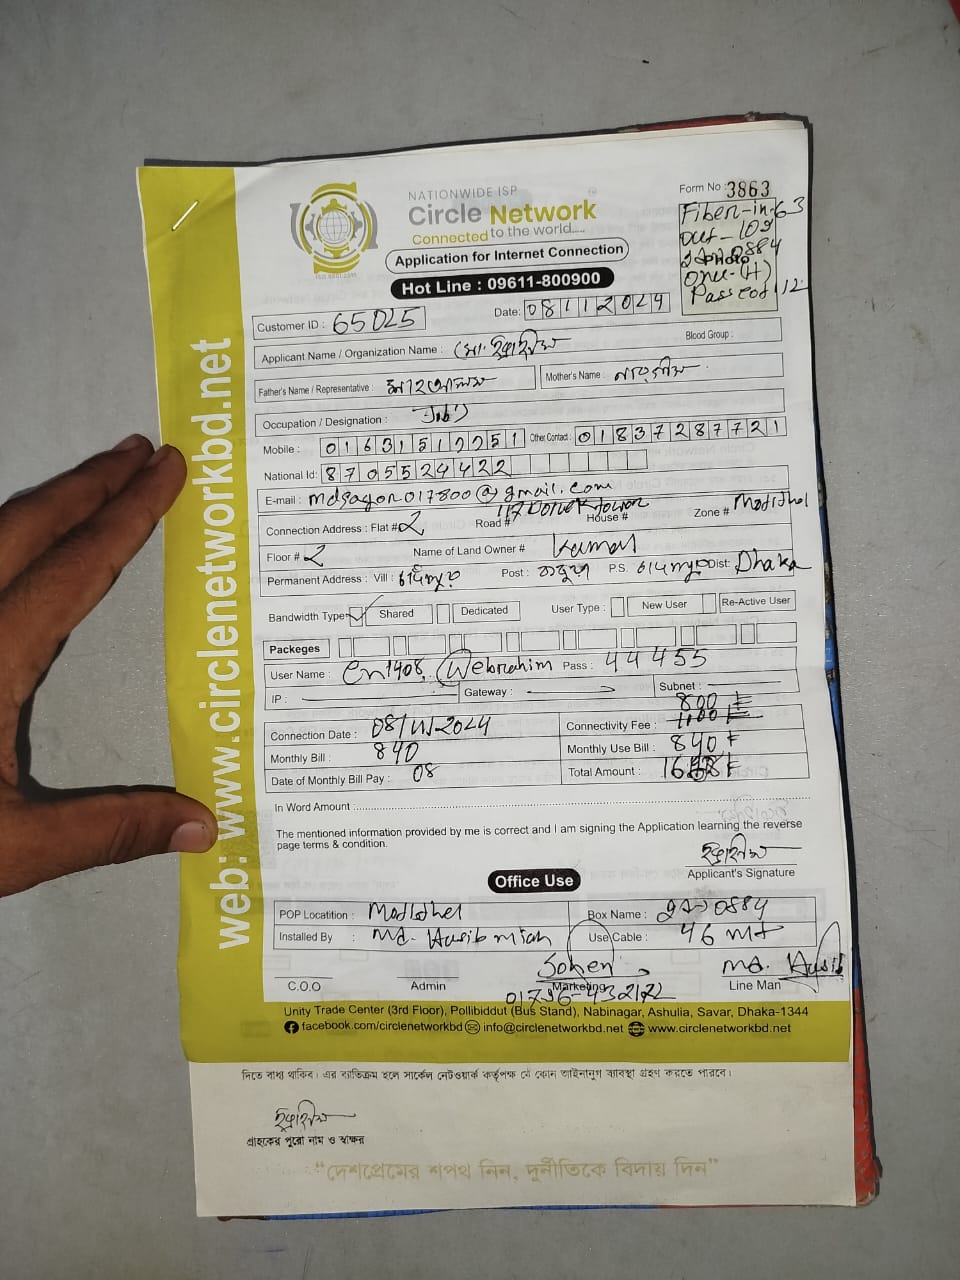 NATIONWIDE ISP
Circle Network
Connected to the world.....
Application for Internet Connection
Hot Line : 09611-800900
Form No : 3863
Fiber-in-63
out-109
0884
Photo
onu-(H)
112
Customer ID : 65025
Date: 08112024
Applicant Name / Organization Name : মো. ইব্রাহীম
Blood Group :
Father's Name / Representative :
Mother's Name :
Occupation / Designation : Job
Mobile :
Other Contact : 01837287721
National Id: 8705524422
E-mail : mdsagor017800@gmail.com
Connection Address : Flat # 2 Road # 117 House # Tower Zone #
Floor # 2 Name of Land Owner # Kamal
Permanent Address : Vill : চাঁদপুর Post : P.S. চাঁদপুর Dist: Dhaka
Bandwidth Type Shared Dedicated User Type : New User Re-Active User
Packeges
User Name : Cn1408 Webrahim Pass : 44455
IP : Gateway : Subnet :
800
Connection Date : 08/11/2024 Connectivity Fee :
Monthly Bill : 840 Monthly Use Bill : 840
Date of Monthly Bill Pay : 08 Total Amount :
In Word Amount :
The mentioned information provided by me is correct and I am signing the Application learning the reverse
page terms & condition.
ইব্রাহীম
Applicant's Signature
Office Use
POP Locatition : Box Name : 0884
Installed By : Md. Hasib Miah Use Cable : 46 mt
Md. Hasib
C.O.O Admin Marketing Line Man
Unity Trade Center (3rd Floor), Pollibiddut (Bus Stand), Nabinagar, Ashulia, Savar, Dhaka-1344
facebook.com/circlenetworkbd info@circlenetworkbd.net www.circlenetworkbd.net
web: www.circlenetworkbd.net
দিতে বাধ্য থাকিব। এর ব্যতিক্রম হলে সার্কেল নেটওয়ার্ক কর্তৃপক্ষ যে কোন আইনানুগ ব্যবস্থা গ্রহণ করতে পারবে।
ইব্রাহীম
গ্রাহকের পুরো নাম ও স্বাক্ষর
“দেশপ্রেমের শপথ নিন, দুর্নীতিকে বিদায় দিন”